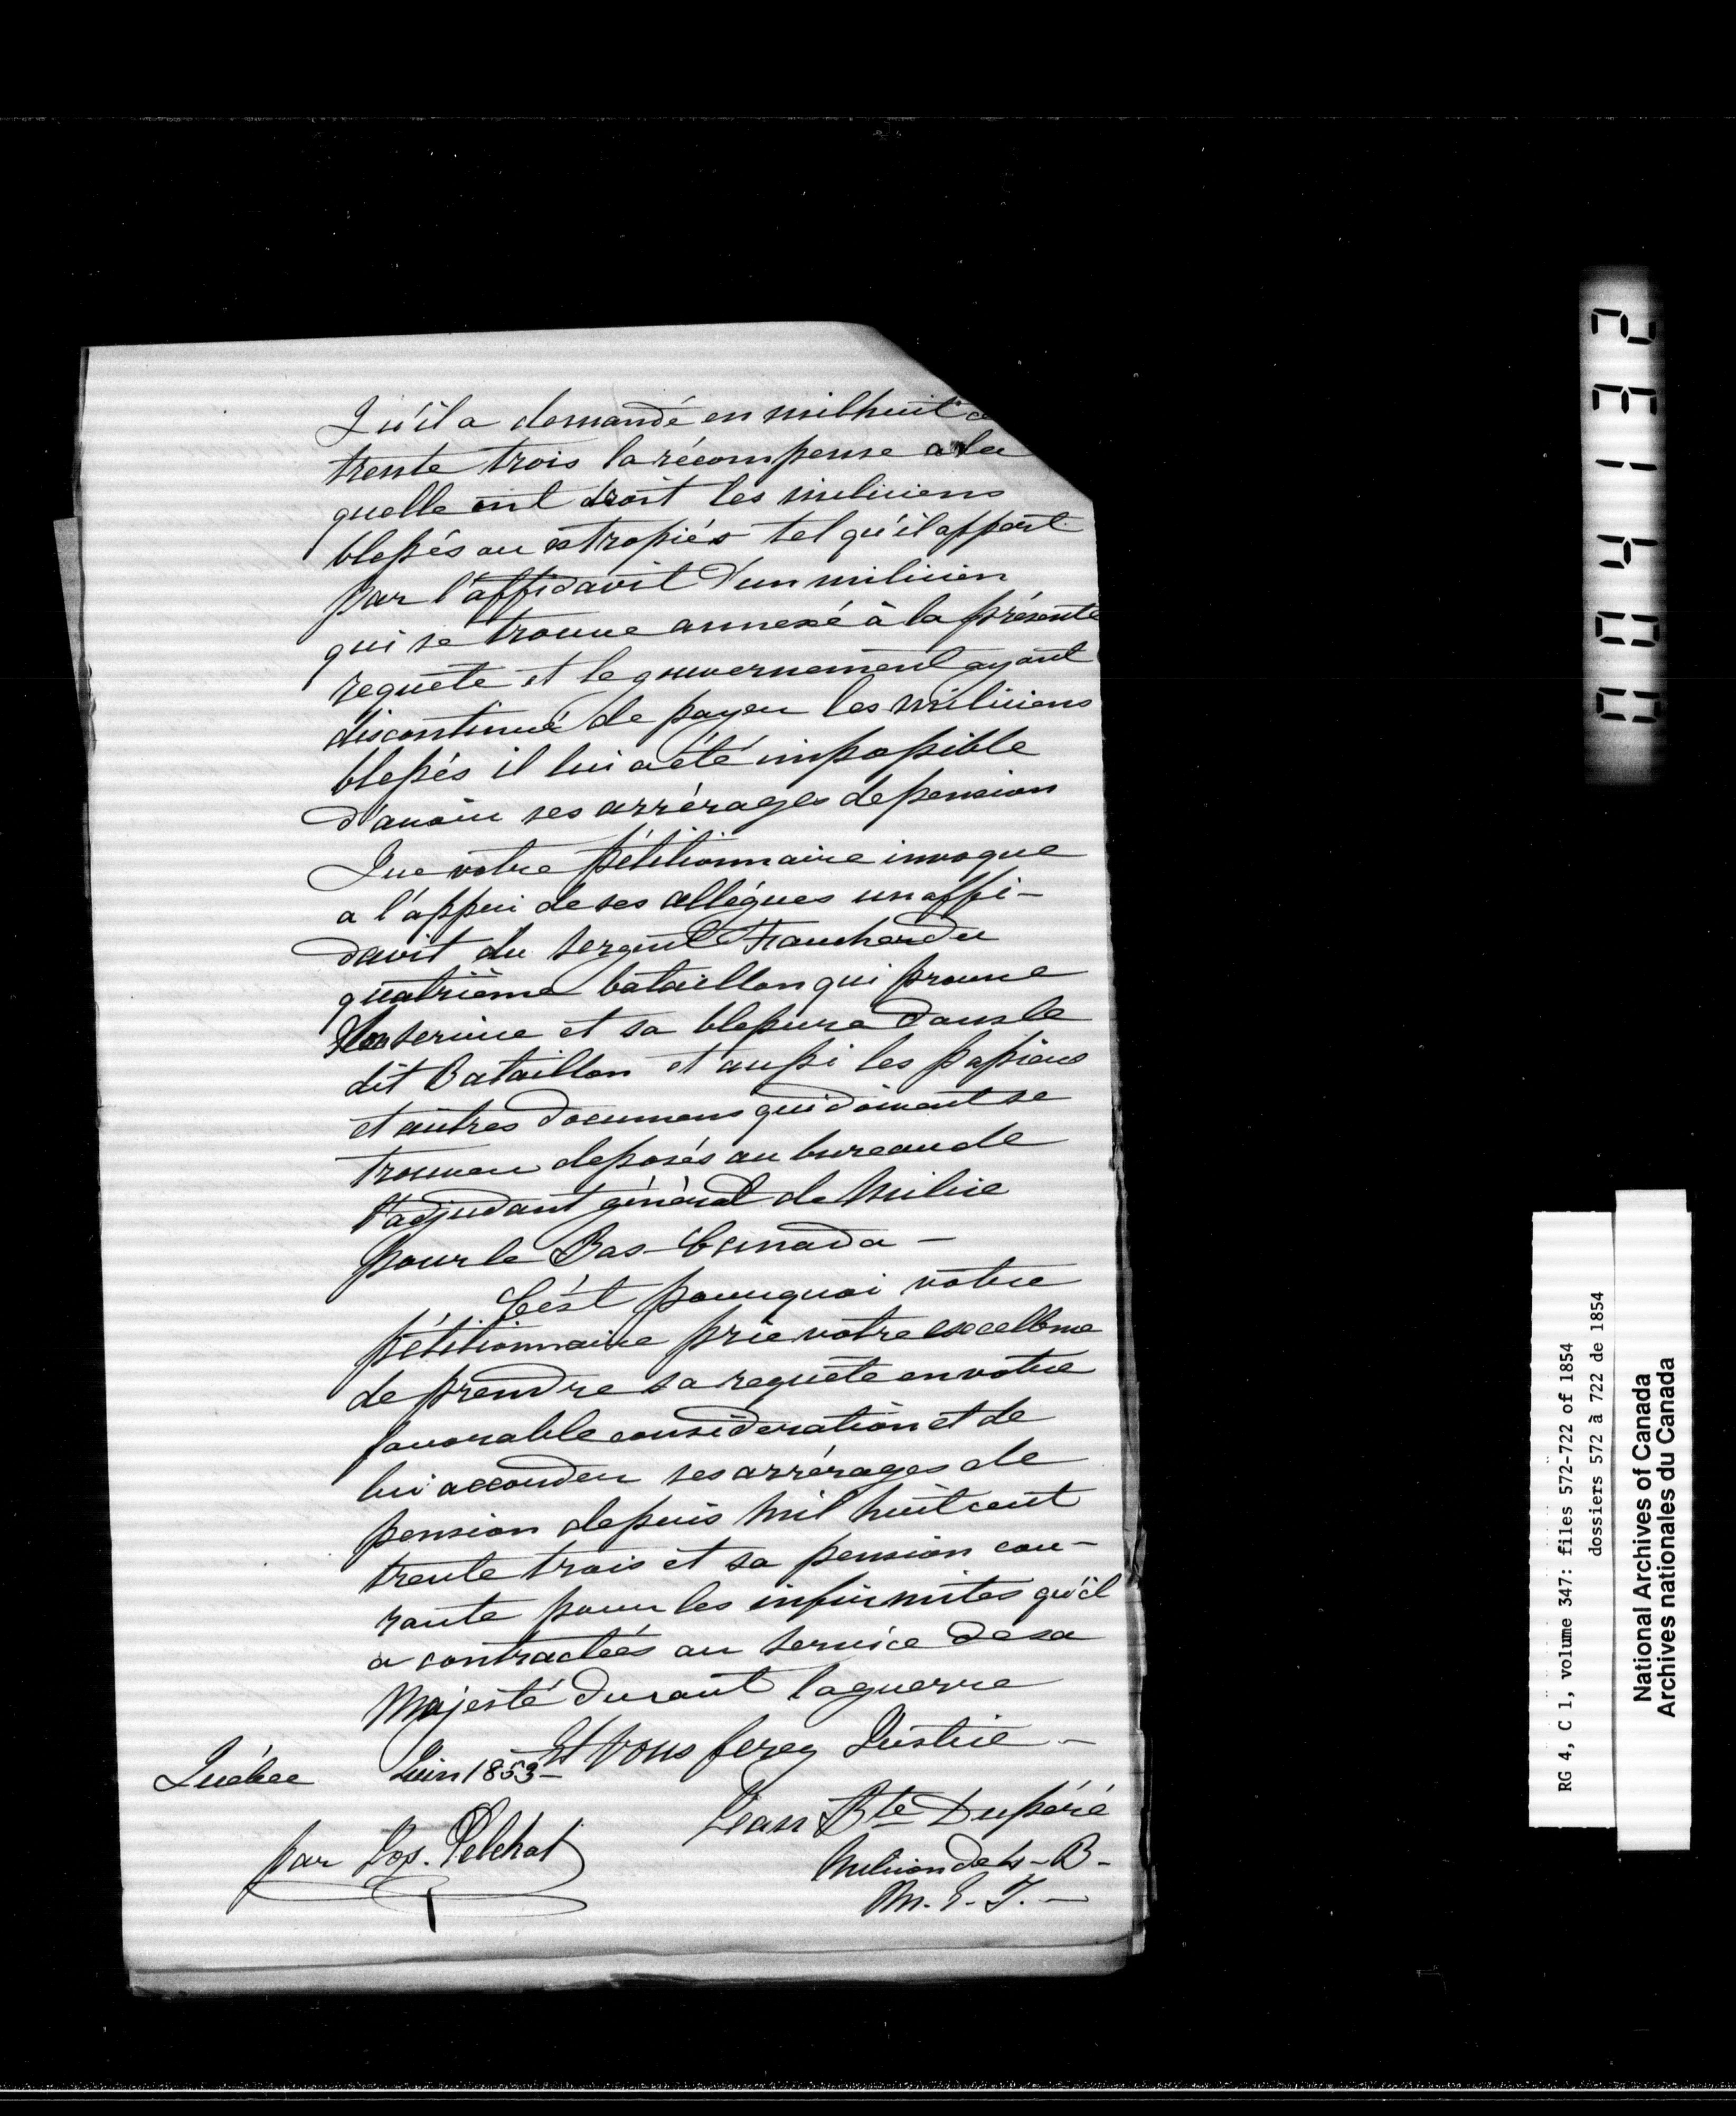 Qu'il a demandé en mil huit c
trente trois la récompense a la
quelle ont droit les miliciens
blessés ou estropiés tel qu'il appert
par l'affidavit d'un milicien
qui se trouve annexé à la présente
requête et le gouvernement ayant
discontinué de payer les miliciens
blessés il lui a été impossible
d'avoir ses arrérages de pension
Que votre pétitionnaire invoque
a l'appui de ses allégués un affi-
davit du sergent Fraucher du
quatrième bataillon qui prouve
son service et sa blessure dans le
dit Bataillon et aussi les papiers
et autres documens qui doivent se
trouver deposés au bureau de
l'adjudant général de Milice
pour le Bas-Canada -
C'est pourquoi votre
pétitionnaire prie votre excellence
de prendre sa requête en votre
favorable considération et de
lui accorder ses arrérages de
pension depuis mil huit cent
trente trois et sa pension cou-
rante pour les infirmites qu'il
a contractées au service de sa
Majesté durant la guerre
Et vous ferez Justice -
Québec Juin 1853-
Jean Bte Duperé
par Jos. Pelchat
Milicien de 4 - B -
M. E. I. -
RG 4, C 1, volume 347: files 572-722 of 1854
dossiers 572 à 722 de 1854
National Archives of Canada
Archives nationales du Canada